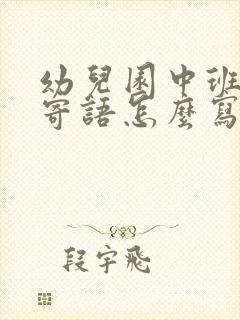 幼兒園中班
寄語怎麼寫
段宇飛